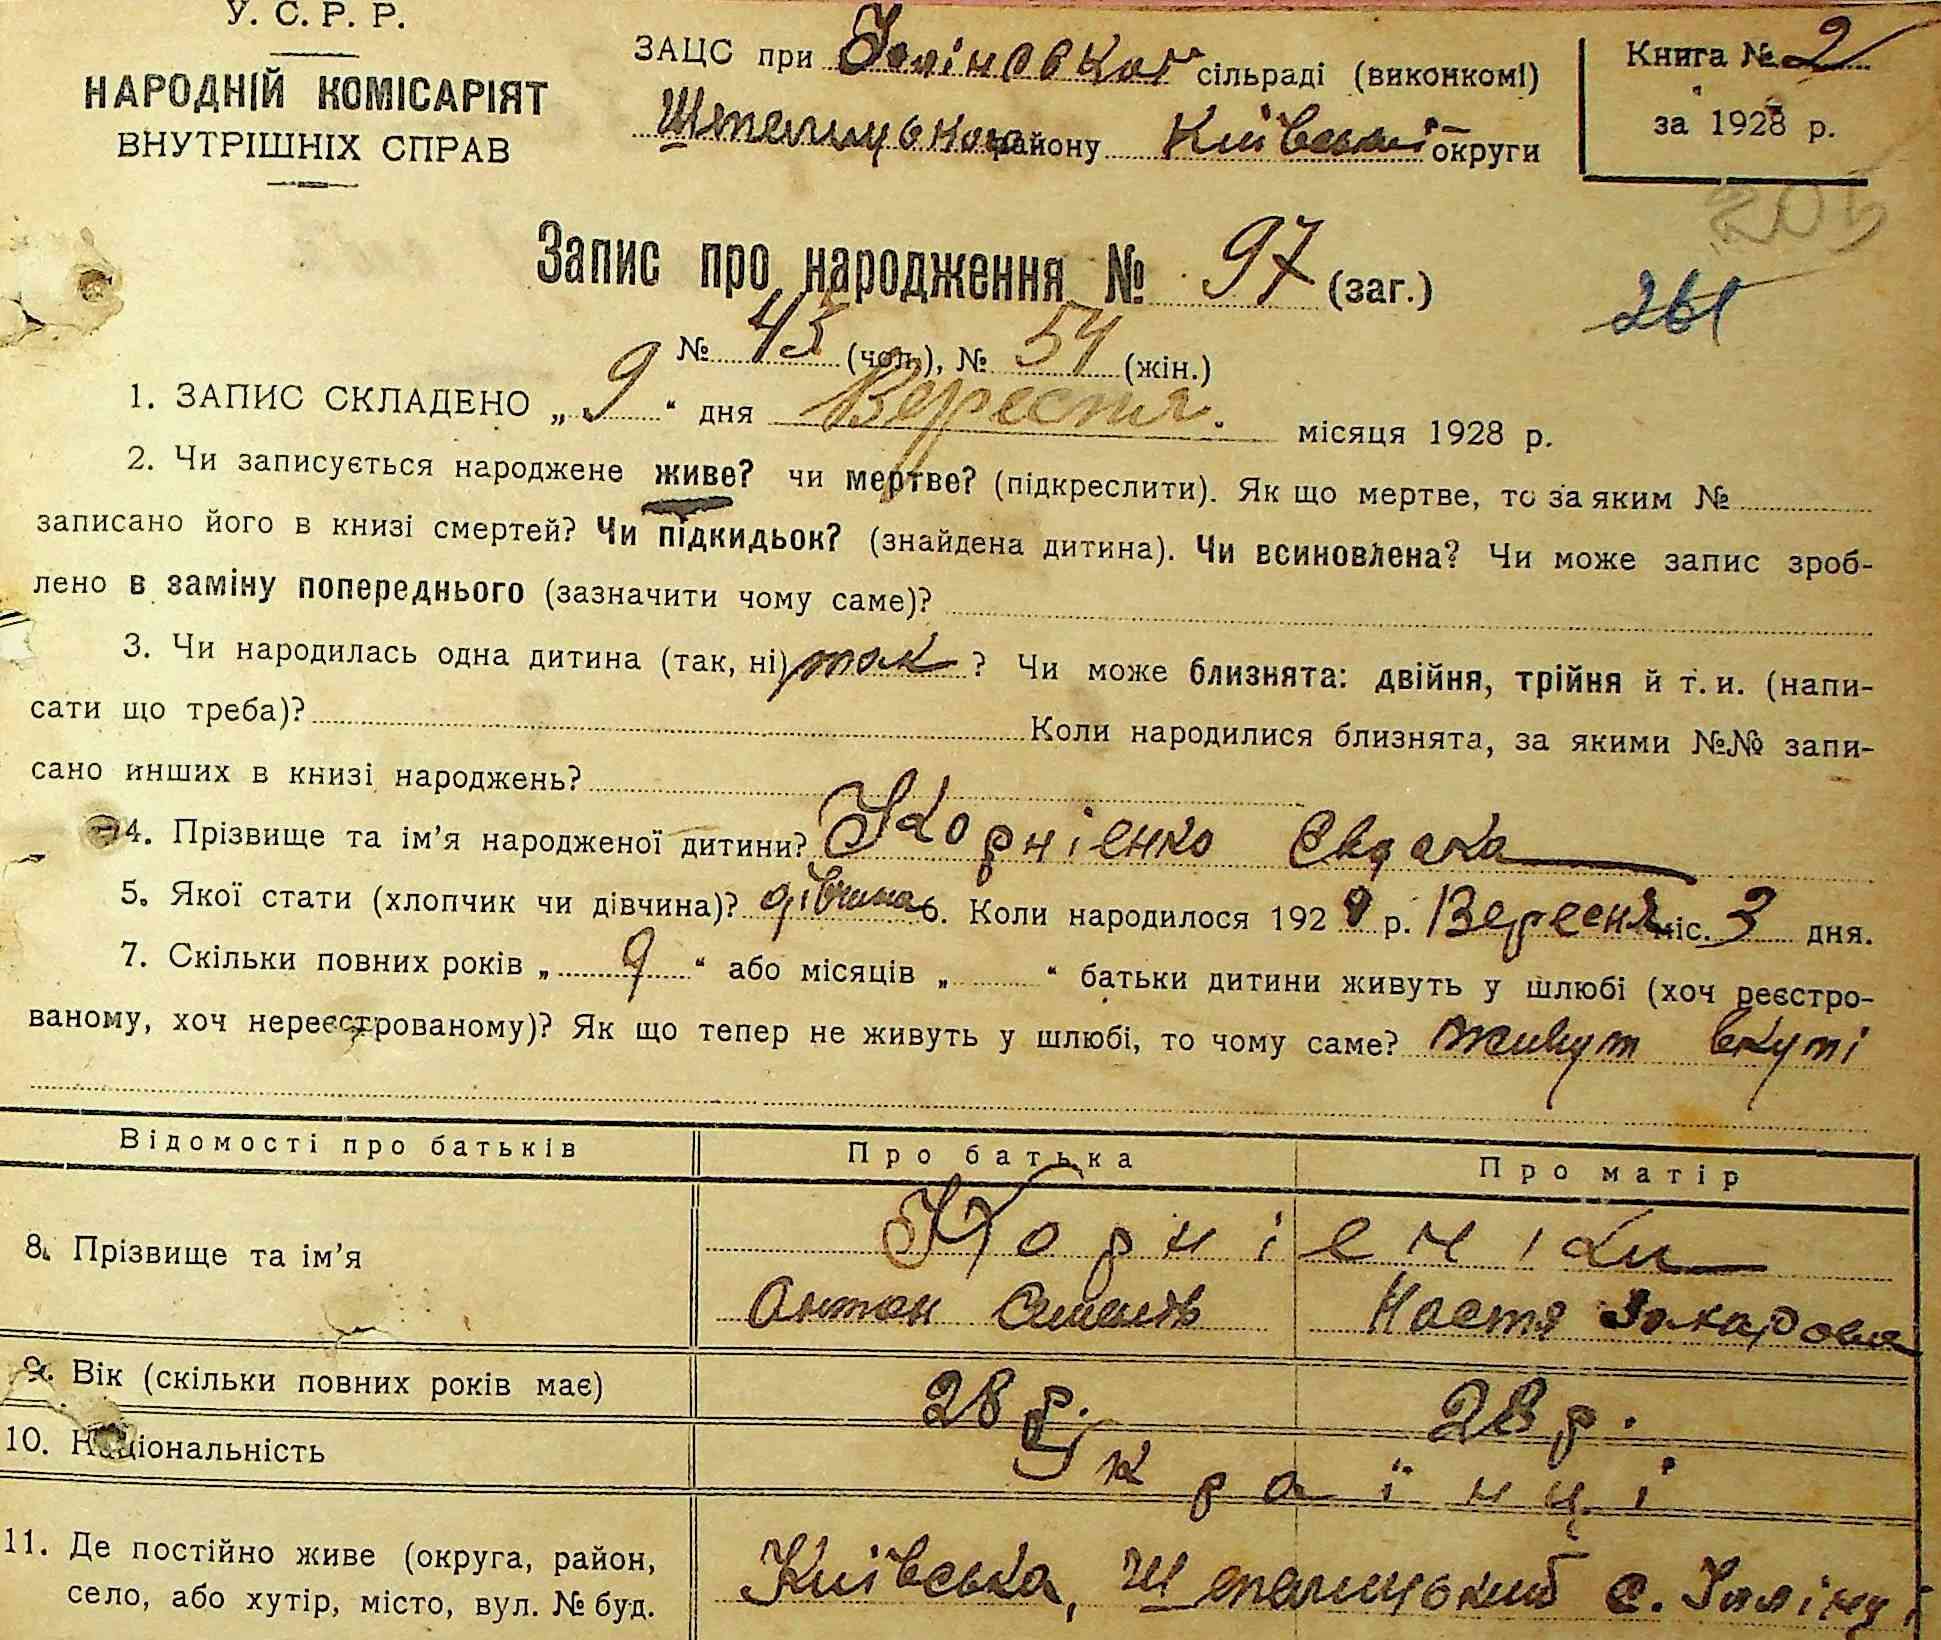 У. С. Р. Р.
НАРОДНІЙ КОМІСАРІЯТ
ВНУТРІШНІХ СПРАВ
ЗАЦС при сільраді (виконкомі)
району Київської округи
Книга № 2
за 1928 р.
205
261
Запис про народження № 97 (заг.)
№ 43 (чол.), № 54 (жін.)
1. ЗАПИС СКЛАДЕНО „ 9 “ дня Вересня. місяця 1928 р.
2. Чи записується народжене живе? чи мертве? (підкреслити). Як що мертве, то за яким №
записано його в книзі смертей? Чи підкидьок? (знайдена дитина). Чи всиновлена? Чи може запис зроб-
лено в заміну попереднього (зазначити чому саме)?
3. Чи народилась одна дитина (так, ні) так ? Чи може близнята: двійня, трійня й т. и. (напи-
сати що треба)? Коли народилися близнята, за якими №№ запи-
сано инших в книзі народжень?
4. Прізвище та ім’я народженої дитини? Корнієнко Євдоха
5. Якої стати (хлопчик чи дівчина)? дівчина 6. Коли народилося 1928 р. Вересня міс. 3 дня.
7. Скільки повних років „ 9 “ або місяців „ “ батьки дитини живуть у шлюбі (хоч реєстро-
ваному, хоч нереєстрованому)? Як що тепер не живуть у шлюбі, то чому саме? живут вкупі
Відомості про батьків Про батька Про матір
8. Прізвище та ім’я Корнієнки
Антон Семенів Настя Захаровна
9. Вік (скільки повних років має) 28 р. 28 р.
10. Національність Українці
11. Де постійно живе (округа, район, Київська, с.
село, або хутір, місто, вул. № буд.